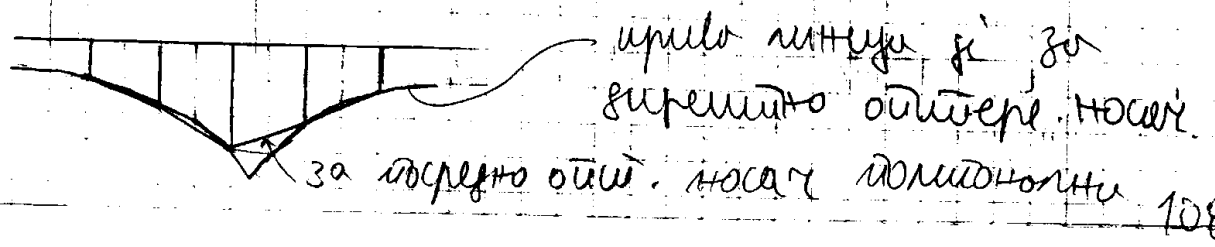 крива линија је за
директно оптере. носач.
за посредно опт. носач полигонални
108